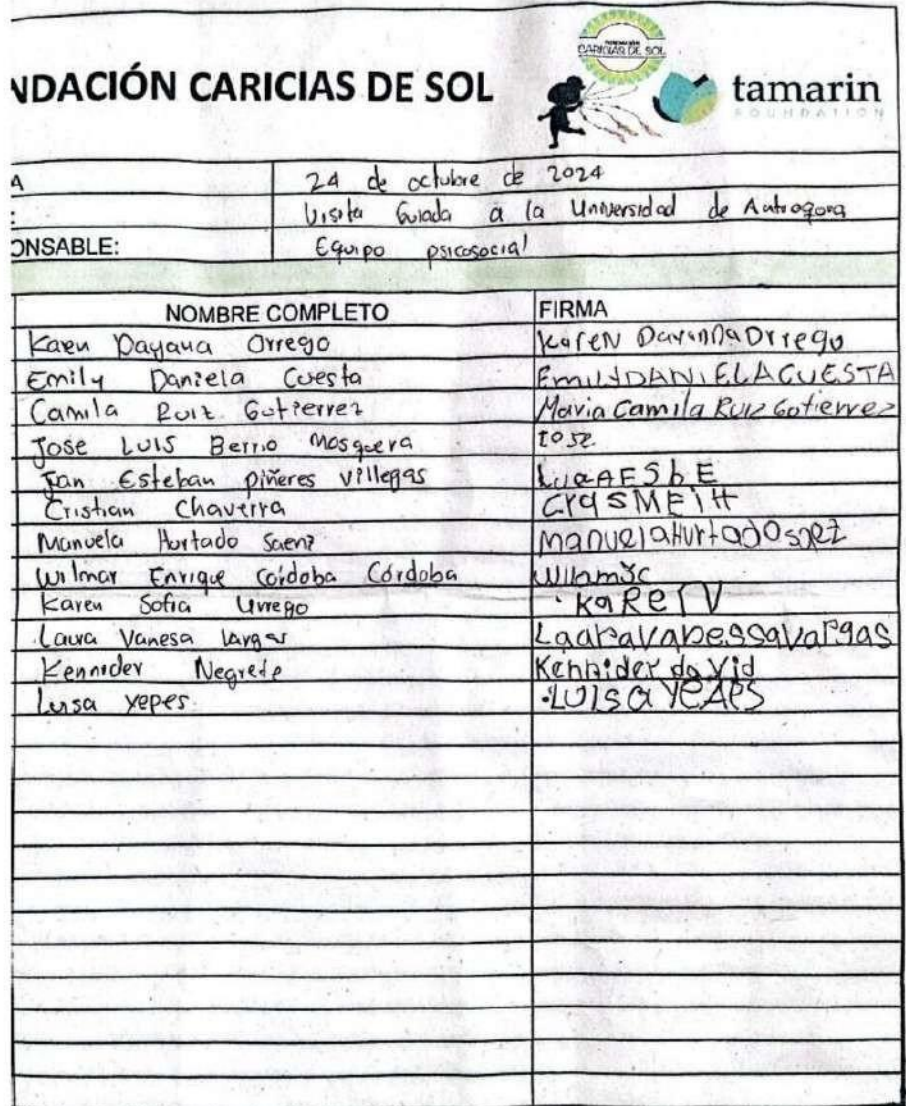 FUNDACIÓN
CARICIAS DE SOL
NDACIÓN CARICIAS DE SOL
tamarin
FOUNDATION
A 24 de octubre de 2024
: Visita Guiada a la Universidad de Antioquia
ONSABLE: Equipo psicosocial
NOMBRE COMPLETO FIRMA
Karen Dayana Orrego Karen Dayanna Orrego
Emily Daniela Cuesta Emily DANIELA CUESTA
Camila Ruiz Gutierrez Maria Camila Ruiz Gutierrez
Jose LUIS Berrio Mosquera Jose
Juan Esteban piñeres villegas
Cristian Chaverra
Manuela Hurtado Saenz Manuela Hurtado
Wilmar Enrique Cordoba Córdoba
Karen Sofia Urrego
Laura Vanesa Vargas Laaravanessavargas
Kennider Negrete Kennider david
Luisa yepes LUISA YEAPS